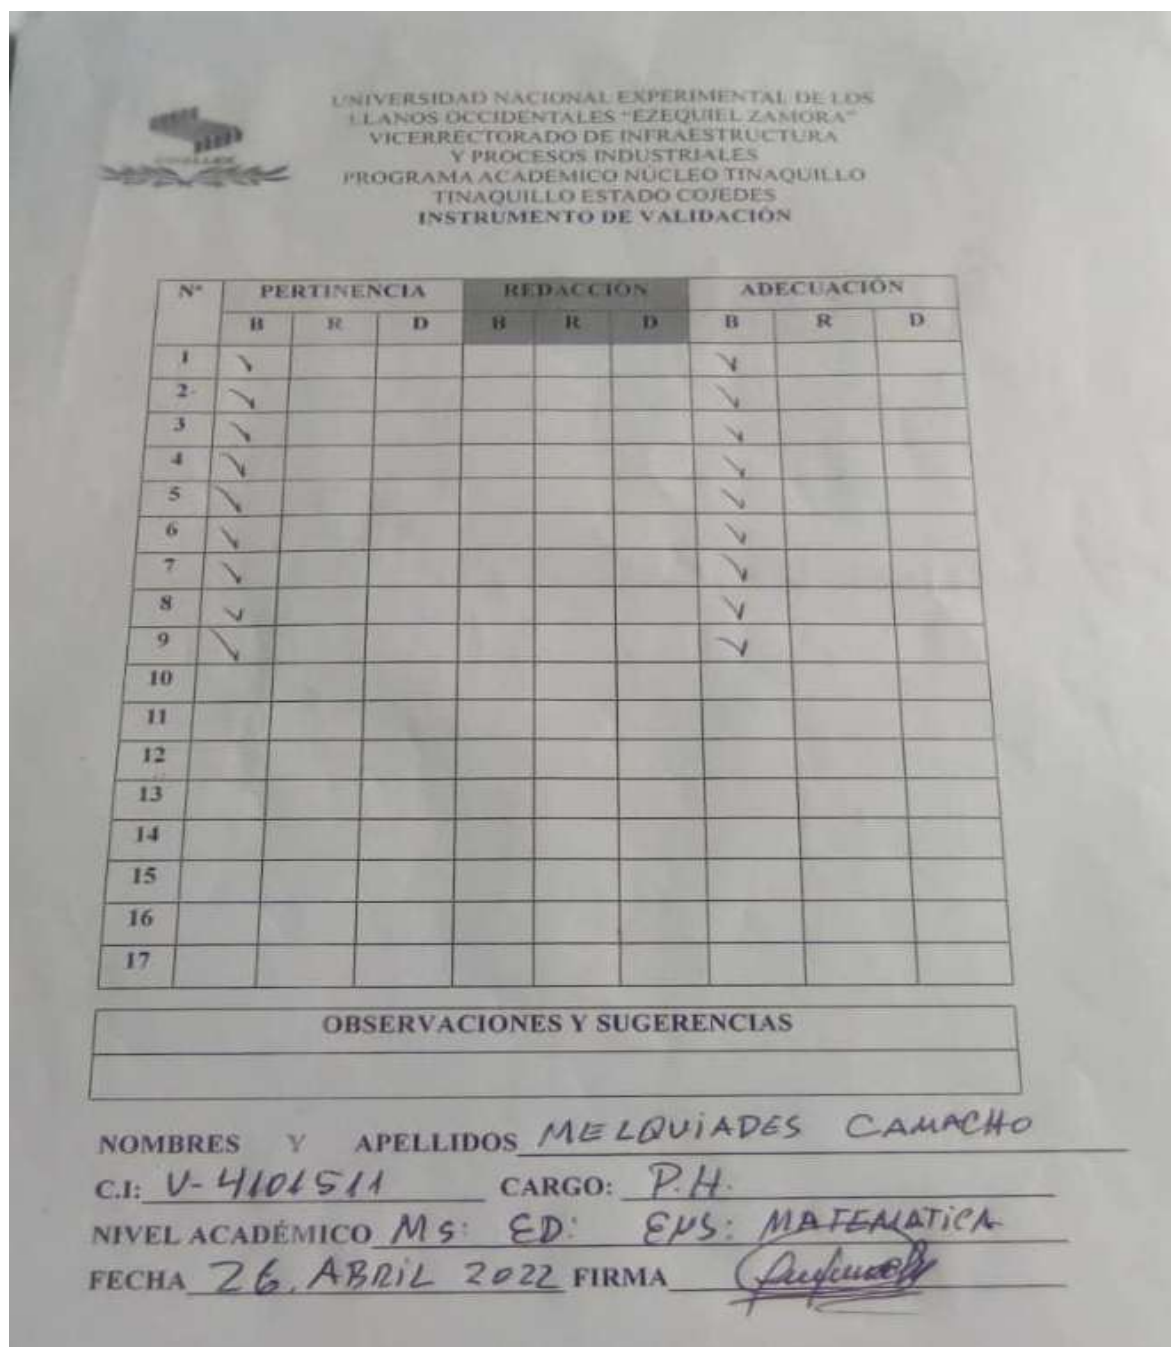 UNIVERSIDAD NACIONAL EXPERIMENTAL DE LOS
LLANOS OCCIDENTALES "EZEQUIEL ZAMORA"
VICERRECTORADO DE INFRAESTRUCTURA
Y PROCESOS INDUSTRIALES
PROGRAMA ACADEMICO NÚCLEO TINAQUILLO
TINAQUILLO ESTADO COJEDES
INSTRUMENTO DE VALIDACIÓN
Nº PERTINENCIA REDACCION ADECUACIÓN
B R D B R D B R D
1 ✓ ✓
2 ✓ ✓
3 ✓ ✓
4 ✓ ✓
5 ✓ ✓
6 ✓ ✓
7 ✓ ✓
8 ✓ ✓
9 ✓ ✓
10
11
12
13
14
15
16
17
OBSERVACIONES Y SUGERENCIAS
NOMBRES Y APELLIDOS MELQUIADES CAMACHO
C.I: V-4101511 CARGO: P.H.
NIVEL ACADÉMICO Ms: ED: ENS: MATEMATICA
FECHA 26. ABRIL 2022 FIRMA